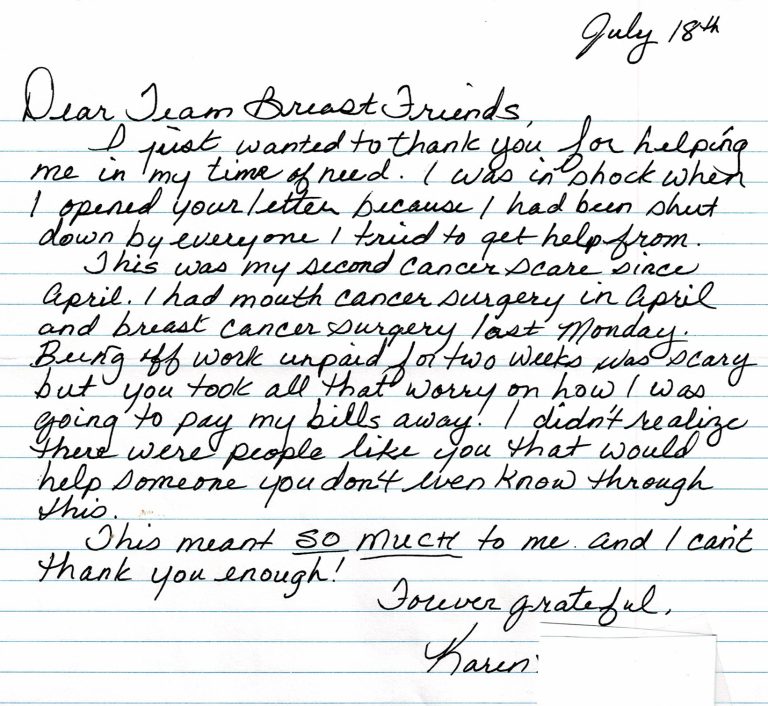 July 18th
Dear Team Breast Friends,
I just wanted to thank you for helping
me in my time of need. I was in shock when
I opened your letter because I had been shut
down by everyone I tried to get help from.
This was my second cancer scare since
April. I had mouth cancer surgery in April
and breast cancer surgery last Monday.
Being off work unpaid for two weeks was scary
but you took all that worry on how I was
going to pay my bills away. I didn't realize
there were people like you that would
help someone you don't even know through
this.
This meant SO MUCH to me and I can't
thank you enough!
Forever grateful,
Karen